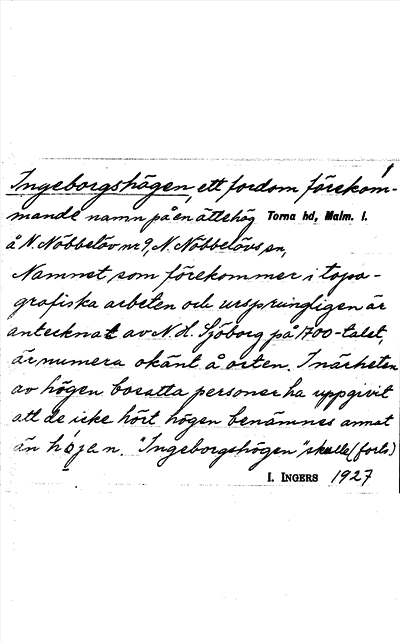 1
Ingeborgshögen, ett fordom förekom-
mande namn på en ättehög Torna hd, Malm. l.
å N. Nöbbelöv nr 9, N. Nöbbelövs sn,
Namnet, som förekommer i topo-
grafiska arbeten och ursprungligen är
antecknat av N. H. Sjöborg på 1700-talet,
är numera okänt å orten. I närheten
av högen bosatta personer ha uppgivit
att de icke hört högen benämnes annat
än højan. "Ingeborgshögen" skulle (forts)
I. INGERS 1927